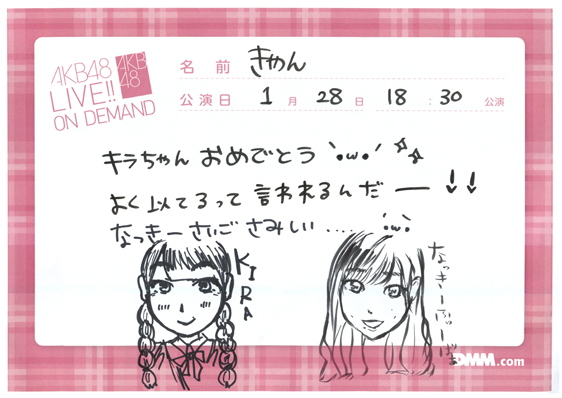 AKB48
LIVE!!
ON DEMAND
AKB
48
名 前 きゃん
公演日 1 月 28 日 18 : 30 公演
キラちゃん おめでとう `•ω•´ ✧✧
よく似てるって言われるんだー ↓↓
なっきーさいご さみしい..... `•ω•`
KIRA
DMM.com